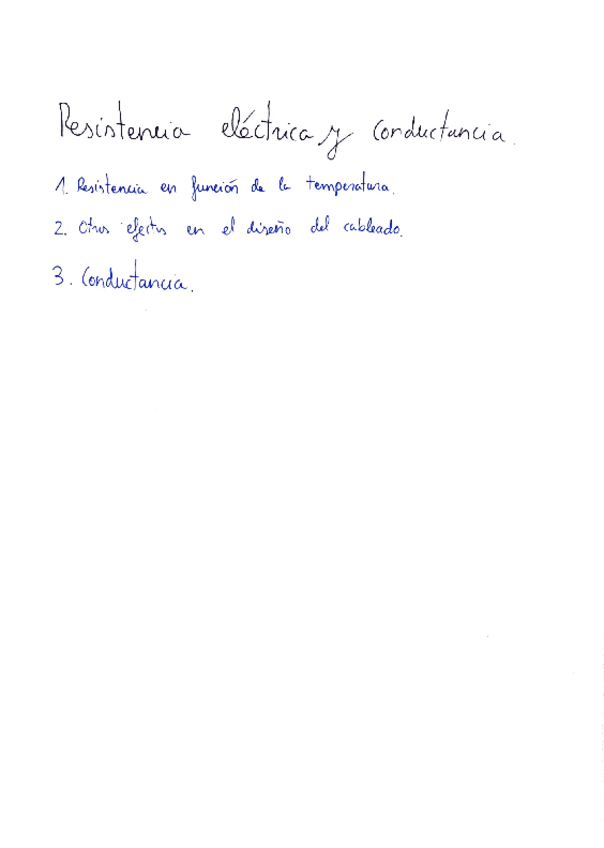 Resistencia eléctrica y conductancia.
1. Resistencia en función de la temperatura.
2. Otros efectos en el diseño del cableado.
3. Conductancia.